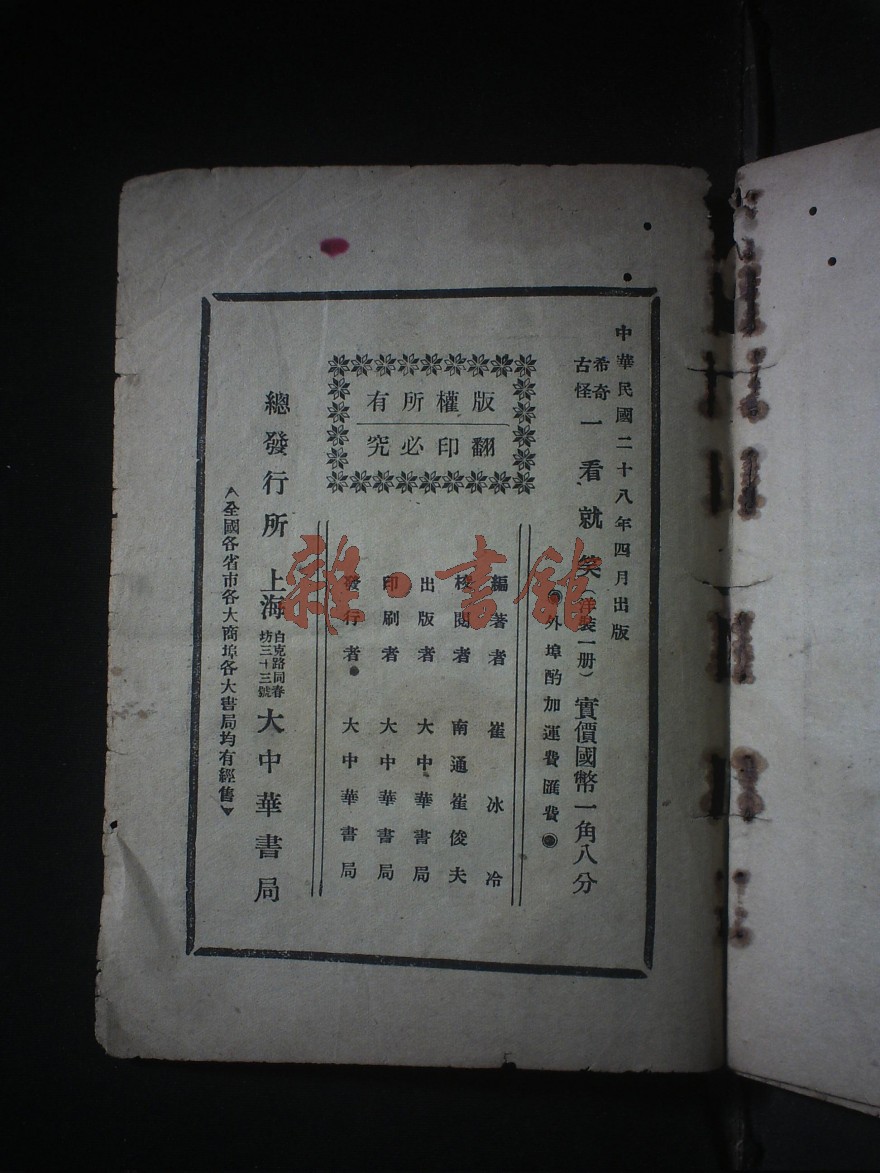 中華民國二十八年四月出版
希奇
古怪
一看就笑（洋裝一册）實價國幣一角八分
◉外埠酌加運費匯費◉
版權所有
翻印必究
編著者 崔冰冷
校閱者 南通崔俊夫
出版者 大中華書局
印刷者 大中華書局
發行者 大中華書局
總發行所 上海 白克路同春坊三十三號 大中華書局
全國各省市各大商埠各大書局均有經售
雜·書館